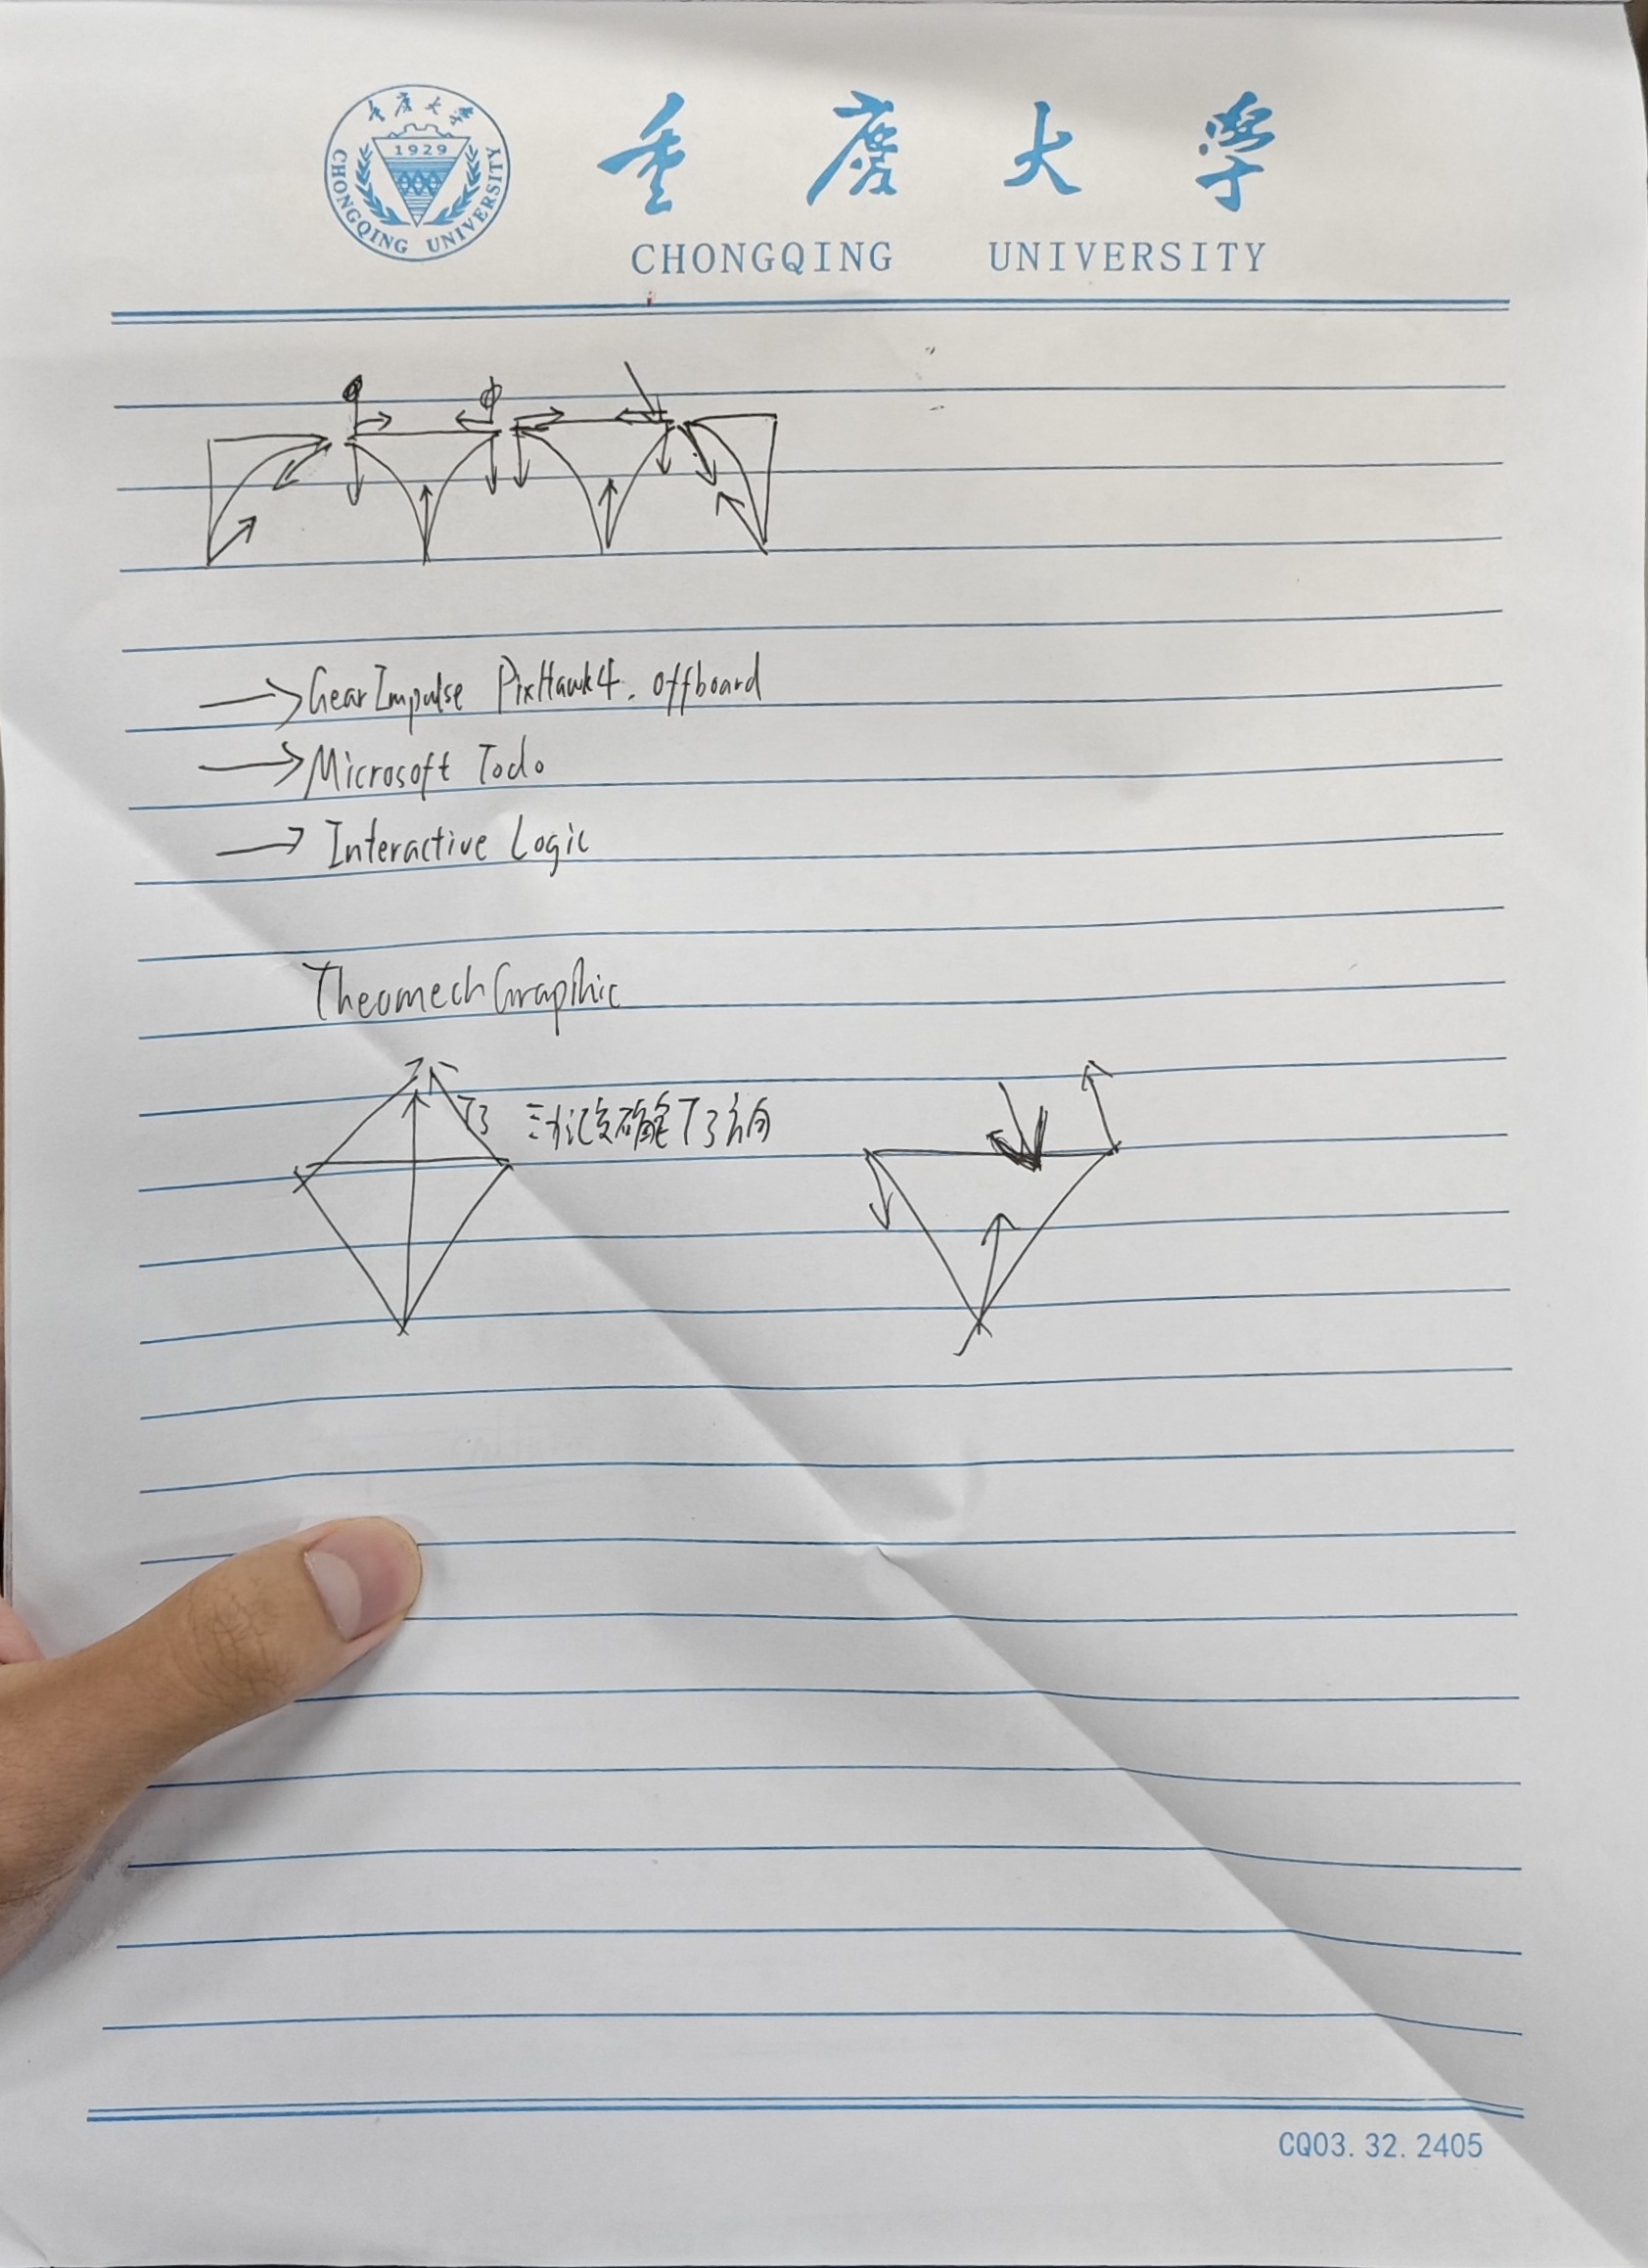 重庆大学
1929
CHONGQING UNIVERSITY
重庆大学
CHONGQING UNIVERSITY
→GearImpulse PixHawk4. offboard
→Microsoft Todo
→Interactive Logic
TheomechGraphic
T3 三力汇交确定T3方向
CQ03.32.2405